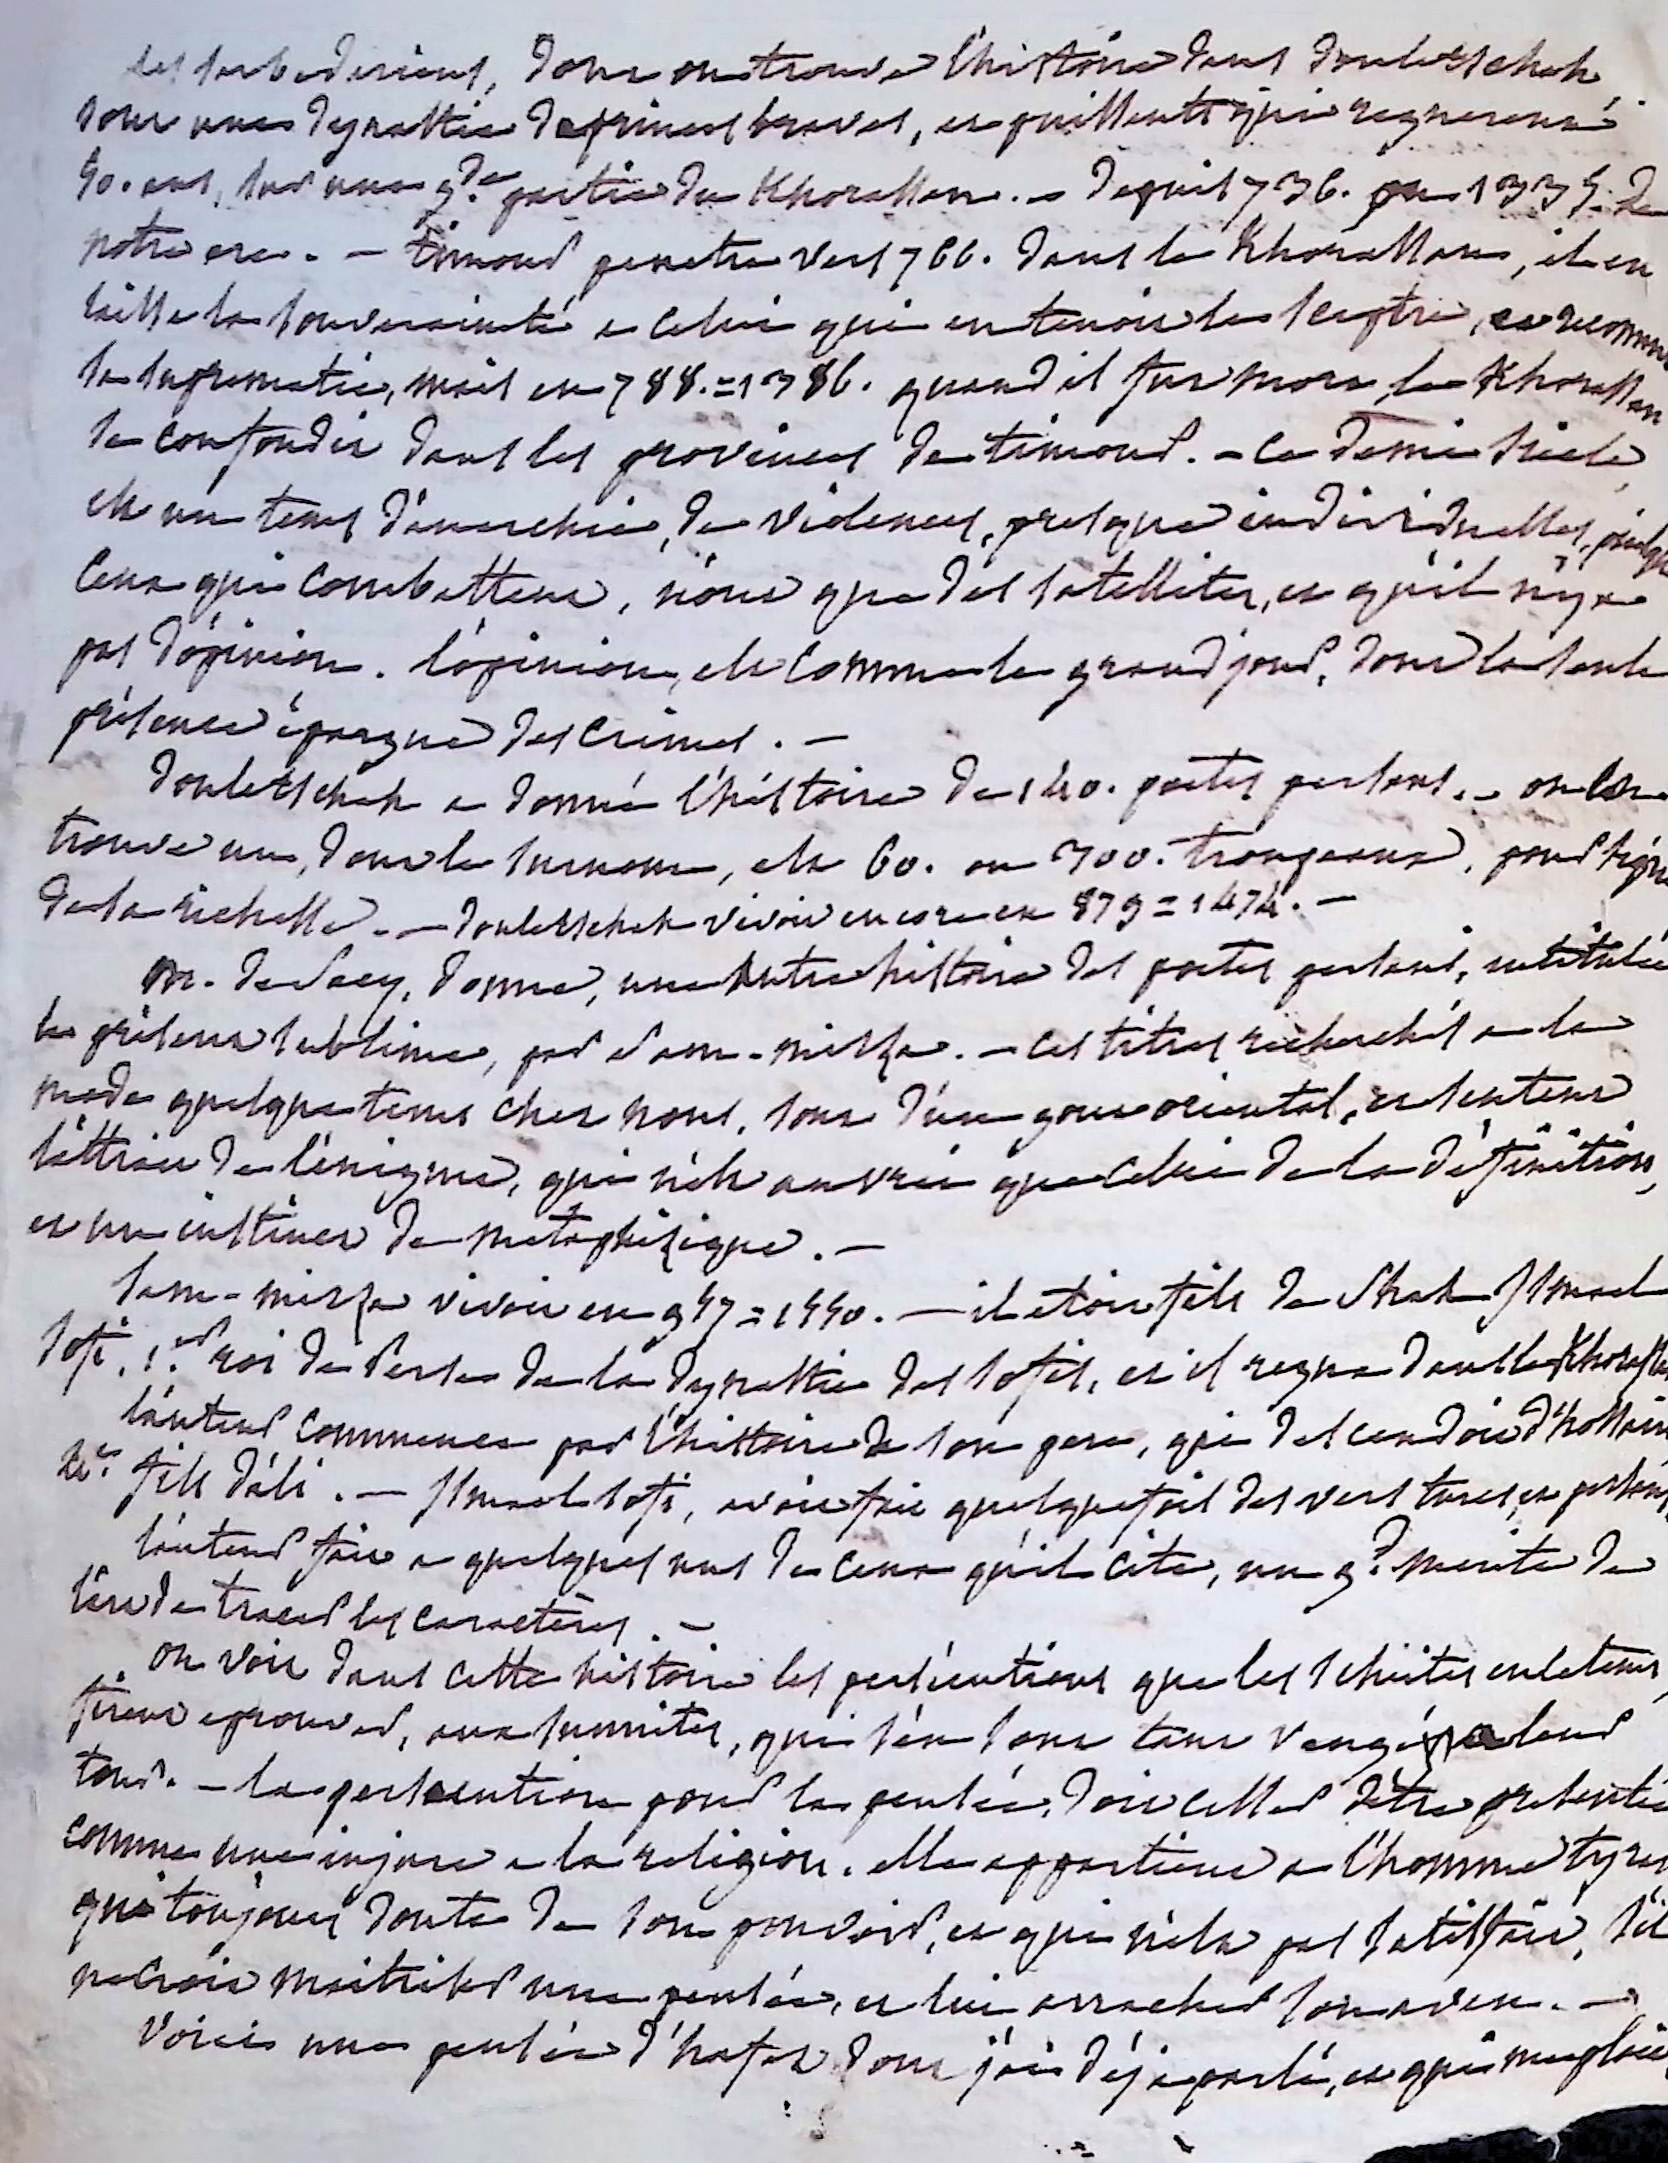 les sarbedariens, dont on trouve l'histoire dans douletschah,
sont une dynastie de princes braves, et puissants qui regnerent
50. ans, sur une g.de partie du Khorassan. – depuis 736. ou 1335. de
notre ere. – timour penetra vers 766. dans le Khorassan, il en
laissa la souveraineté a celui qui en tenoit le sceptre, et reconnut
la suprematie, mais en 788.=1386. quand il fut mort, le Khorassan
se confondit dans les provinces de timour. – ce demi siecle,
est un tems d'anarchie, de violences, presque individuelles, puisque
ceux qui combattent, n'ont que des satellites, et qu'il n'y a
pas d'opinion. l'opinion, est comme le grand jour, dont la seule
présence épargne des crimes. –
douletschah a donné l'histoire de 140. poetes persans. – on en
trouve un, dont le surnom, est 60. ou 700. troupeaux, pour signe
de sa richesse. – douletschah vivoit encore en 879=1474. –
m. de Sacy, donne, une autre histoire des poetes persans, intitulée
le présent sublime, par Sam-mirza. – ces titres recherchés a la
mode quelque tems chez nous, sont d'un gout oriental, et sentent
l'attrait de l'énigme, qui n'est au vrai que celui de la définition,
et un instinct de metaphizique. –
Sam-mirza vivoit en 947=1540. – il etoit fils de Shah Ismael
sofi, 1.er roi de Perse de la dynastie des sofis, et il regna dans le Khorassan
l'auteur commence par l'histoire de son pere, qui descendoit d'hossain
fils d'ali. – Ismael sofi, avoit fait quelquefois des vers turcs, et persans.
l'auteur fait a quelques uns de ceux qu'il cite, un g.d merite de
l'art de tracer les caractères. –
on voit dans cette histoire les persécutions que les schiites en le tems,
firent eprouver, aux sunnites, qui s'en sont tant vengés a leur
tour. – la persecution pour la pensée, doit cesser d'être presentée
comme une injure a la religion. elle appartient a l'homme tyran
qui toujours doute de son pouvoir, et qui n'est pas satisfait, s'il
ne croit maitriser une pensée, et lui arracher son aveu. –
Voici une pensée d'hafez dont j'ai déja parlé, et qui me plait